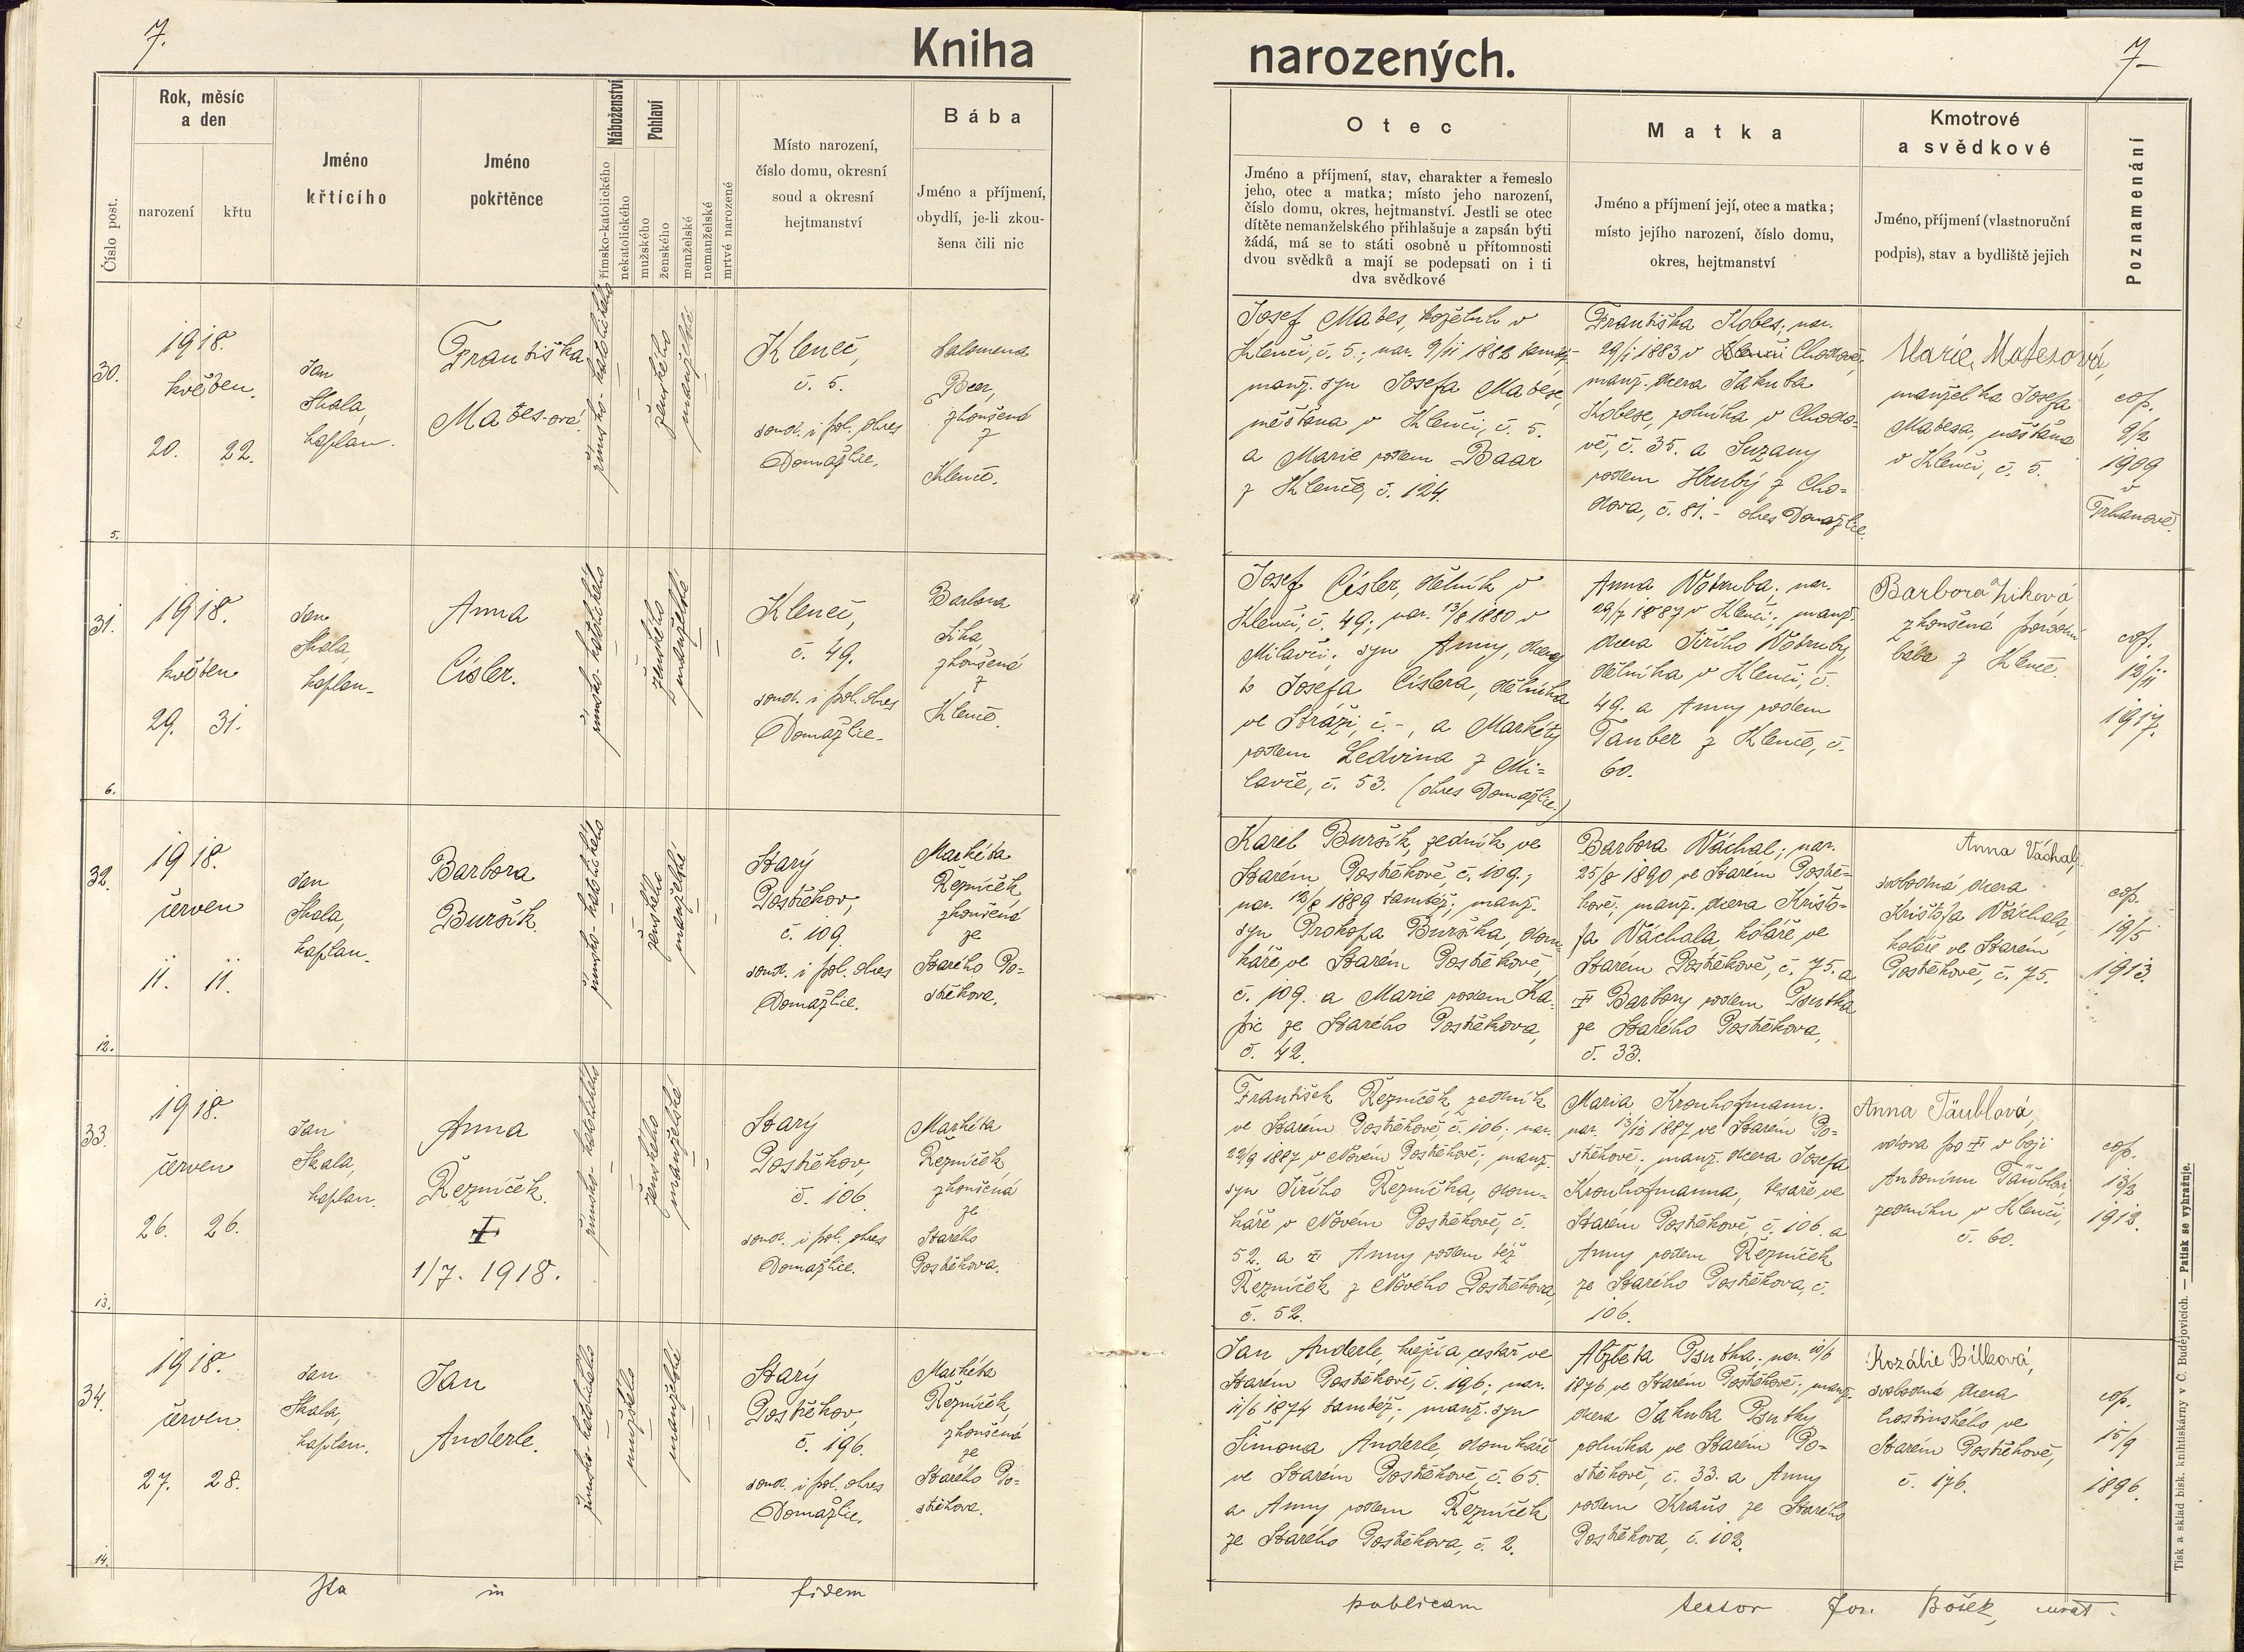 7.
Kniha
narozených.
7
Číslo post.
Rok, měsíc
a den
narození
křtu
Jméno
křtícího
Jméno
pokřtěnce
Náboženství
římsko-katolického
nekatolického
Pohlaví
mužského
ženského
manželské
nemanželské
mrtvé narozené
Místo narození,
číslo domu, okresní
soud a okresní
hejtmanství
Bába
Jméno a příjmení,
obydlí, je-li zkou-
šena čili nic
Otec
Jméno a příjmení, stav, charakter a řemeslo
jeho, otec a matka; místo jeho narození,
číslo domu, okres, hejtmanství. Jestli se otec
dítěte nemanželského přihlašuje a zapsán býti
žádá, má se to státi osobně u přítomnosti
dvou svědků a mají se podepsati on i ti
dva svědkové
Matka
Jméno a příjmení její, otec a matka;
místo jejího narození, číslo domu,
okres, hejtmanství
Kmotrové
a svědkové
Jméno, příjmení (vlastnoruční
podpis), stav a bydliště jejich
Poznamenání
30.
5.
1918.
květen.
20. 22.
Jan
Skala,
kaplan.
Františka
Mates-ová
římsko-katolického
ženského
manželské
Kleneč,
č. 5.
soud. i pol. okres
Domažlice.
Salomena
Beer,
zkoušená
z
Klenče.
Josef Mates, koželuh v
Klenči, č. 5.; nar. 9/11 1882 tamtéž
manž. syn Josefa Matese,
měšťana v Klenči, č. 5.
a Marie rodem Baar
z Klenče, č. 124.
Františka Kobes; nar.
29/1 1883 v Klenči Chodově,
manž. dcera Jakuba
Kobese, rolníka v Chodo-
vě, č. 35. a Suzany
rodem Hrubý z Cho-
dova, č. 81.- okres Domažlice
Marie Matesová,
manželka Josefa
Matesa, měšťana
v Klenči, č. 5.
cop.
9/2
1909
v
Trhanově.
31.
6.
1918.
květen
29. 31.
Jan
Skala,
kaplan.
Anna
Císler.
římsko-katolického
ženského
manželské
Kleneč,
č. 49.
soud. i pol. okres
Domažlice.
Barbora
Lika,
zkoušená
z
Klenče.
Josef Císler, dělník v
Klenči, č. 49; nar. 13/8 1880 v
Milavči; syn Anny, dcery
Josefa Císlera, dělníka
ve Stráži, č. -, a Markéty
rodem Ledvina z Mi-
lavče, č. 53. (okres Domažlice.)
Anna Votruba; nar.
29/7 1887 v Klenči; manž.
dcera Jiřího Votruby,
dělníka v Klenči, č.
49. a Anny rodem
Tauber z Klenče, č.
60.
Barbora Liková
zkoušená porodní
bába z Klenče.
cop.
12/11
1917.
32.
12.
1918.
červen
11. 11.
Jan
Skala,
kaplan.
Barbora
Buršík.
římsko-katolického
ženského
manželské
Starý
Postřekov,
č. 109.
soud. i pol. okres
Domažlice.
Markéta
Řezníček,
zkoušená
ze
Starého Po-
střekova.
Karel Buršík, zedník ve
Starém Postřekově, č. 109.;
nar. 12/8 1889 tamtéž; manž.
syn Prokopa Buršíka, dom-
káře ve Starém Postřekově,
č. 109. a Marie rodem Ka-
pic ze Starého Postřekova,
č. 42.
Barbora Váchal; nar.
25/8 1890 ve Starém Postře-
kově; manž. dcera Krišto-
fa Váchala, koláře ve
Starém Postřekově, č. 75. a
Barbory rodem Psutka
ze Starého Postřekova,
č. 33.
Anna Váchal,
svobodná dcera
Krištofa Váchala,
koláře ve Starém
Postřekově, č. 75.
cop.
19/5
1913.
33.
13.
1918.
červen
26. 26.
Jan
Skala,
kaplan.
Anna
Řezníček.
1/7. 1918.
římsko-katolického
ženského
manželské
Starý
Postřekov,
č. 106.
soud. i pol. okres
Domažlice.
Markéta
Řezníček,
zkoušená
ze
Starého
Postřekova.
František Řezníček, zedník
ve Starém Postřekově, č. 106; nar.
22/9 1887 v Novém Postřekově; manž.
syn Jiřího Řezníčka, dom-
káře v Novém Postřekově, č.
52. a Anny rodem též
Řezníček z Nového Postřekova,
č. 52.
Maria Kronhofmann;
nar. 13/12 1887 ve Starém Po-
střekově; manž. dcera Josefa
Kronhofmanna, tesaře ve
Starém Postřekově, č. 106. a
Anny rodem Řezníček
ze Starého Postřekova, č.
106.
Anna Täublová,
vdova po v boji
Antonínu Täublovi,
zedníku v Klenči,
č. 60.
cop.
13/2
1912.
34.
14.
1918.
červen
27. 28.
Jan
Skala,
kaplan.
Jan
Anderle.
římsko-katolického
mužského
manželské
Starý
Postřekov,
č. 196.
soud. i pol. okres
Domažlice.
Markéta
Řezníček,
zkoušená
ze
Starého Po-
střekova.
Jan Anderle, krejčí a cestář ve
Starém Postřekově, č. 196; nar.
11/6 1874 tamtéž; manž. syn
Šimona Anderle, domkáře
ve Starém Postřekově, č. 65.
a Anny rodem Řezníček
ze Starého Postřekova, č. 2.
Alžběta Psutka; nar. 10/6
1876 ve Starém Postřekově; manž.
dcera Jakuba Psutky,
rolníka ve Starém Po-
střekově, č. 33. a Anny
rodem Kraus ze Starého
Postřekova, č. 102.
Rozálie Bílková,
svobodná dcera
hostinského ve
Starém Postřekově,
č. 176.
cop.
15/9
1896.
Ita in fidem publicam testor Jos. Bošek,
Tisk a sklad bisk. knihtiskárny v Č. Budějovicích. — Patisk se vyhražuje.